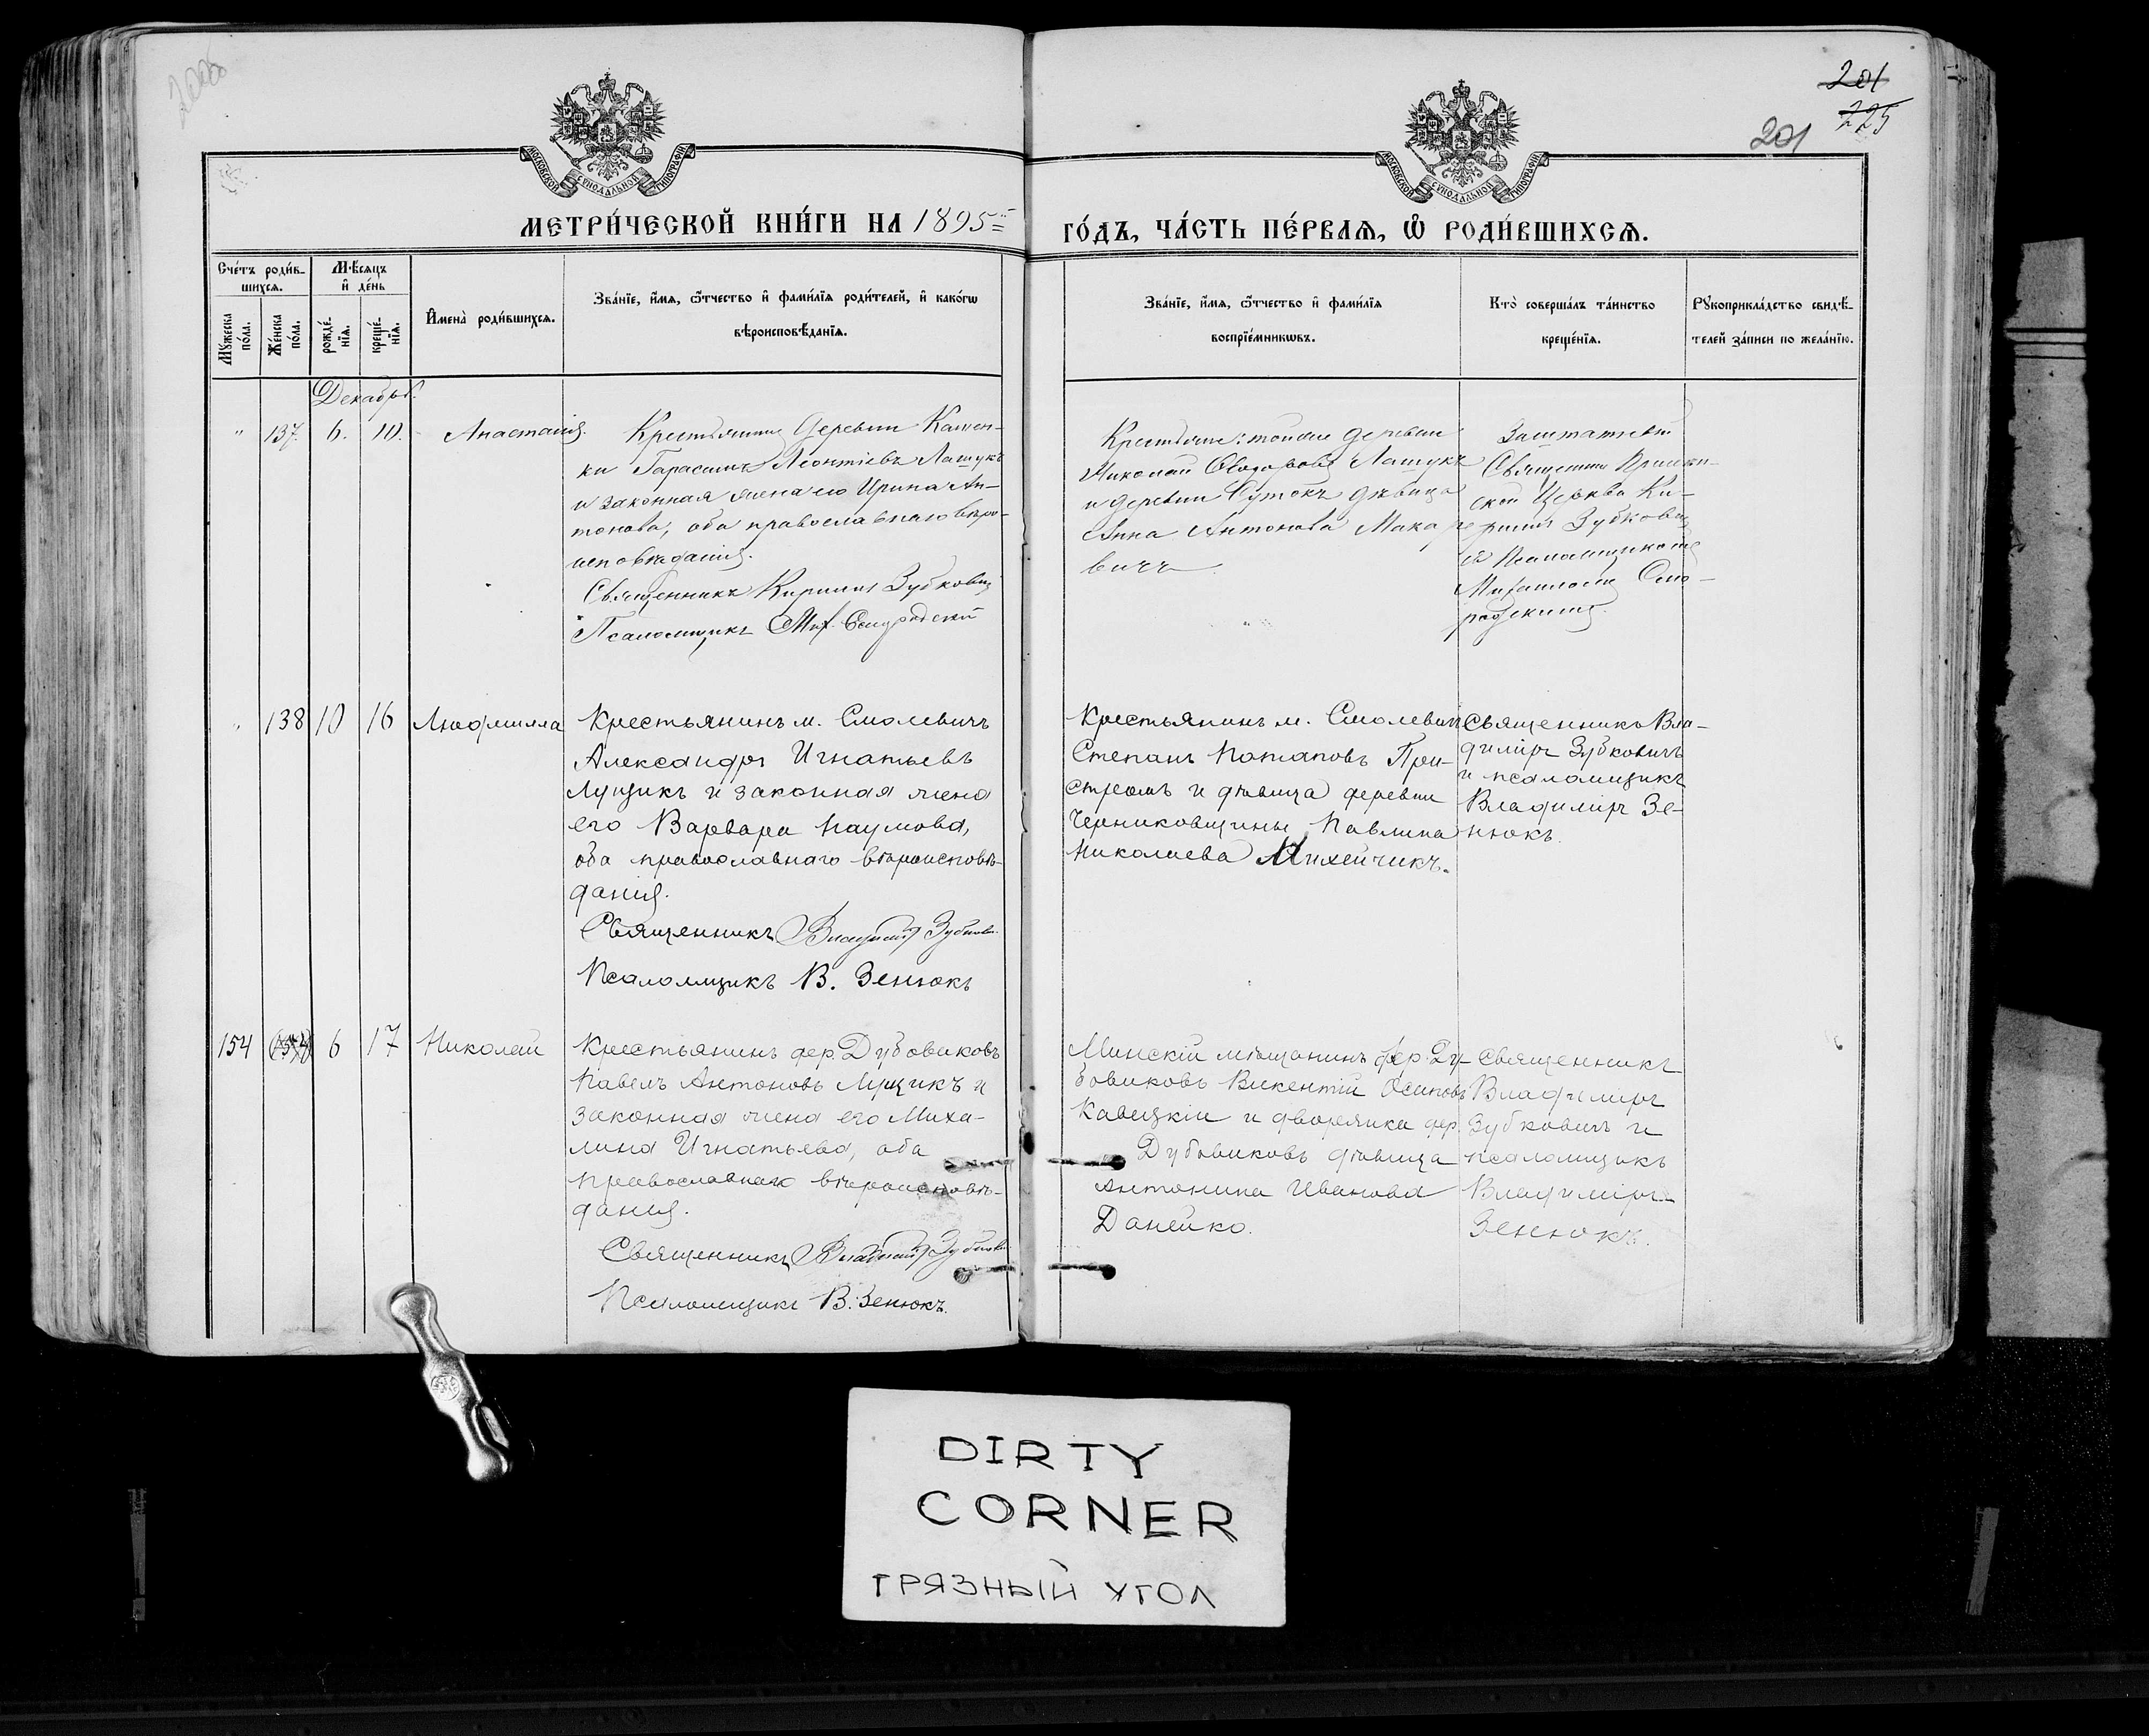 201
225
201
МОСКОВСКОЙ СѴНОДАЛЬНОЙ ТИПОГРАФІИ
МОСКОВСКОЙ СѴНОДАЛЬНОЙ ТИПОГРАФІИ
МЕТРИ́ЧЕСКОЙ КНИ́ГИ НА 1895
ГО́ДЪ, ЧА́СТЬ ПЕ́РВАѦ, Ѡ РОДИ́ВШИХСѦ.
Сче́тъ роди́в-
шихсѧ.
Мꙋ́жеска по́ла.
Же́нска по́ла.
Мѣ́сѧцъ и де́нь
рожде́-
нїѧ.
креще́-
нїѧ.
Имена̀ роди́вшихсѧ.
Зва́нїе, и́мѧ, ѻ́тчество и фами́лїѧ роди́телей, и како́гѡ
вѣроисповѣ́данїѧ.
Зва́нїе, и́мѧ, ѻ́тчество и фами́лїѧ
воспрїе́мникѡвъ.
Кто̀ соверша́лъ та́инство
креще́нїѧ.
Рꙋкоприкла́дство свидѣ́-
телей за́писи по жела́нїю.
Декабрь.
" 137. 6. 10. Анастасія.
Крестьянинъ деревни Камен-
ки Гарасимъ Леонтіевъ Лашукъ
и законная жена его Ирина Ан-
тонова, оба православнаго вѣро-
исповѣданія.
Священникъ Кириллъ Зубковичъ
Псаломщикъ Мих.
Крестьяне: тойже деревни
Николай Ѳеодоровъ Лашукъ
и деревни Сутокъ дѣвица
Анна Антонова Макаре
вичъ
Заштатный
Священникъ
ской Церкви Ки-
риллъ Зубковичъ
съ Псаломщикомъ
Михаиломъ Смо-
родскимъ.
" 138 10 16 Людмилла
Крестьянинъ м. Смолевичъ
Александръ Игнатьевъ
Лущикъ и законная жена
его Варвара Наумова,
оба православнаго вѣроисповѣ-
данія.
Священникъ Владиміръ Зубкович
Псаломщикъ В. Зенюкъ
Крестьянинъ м. Смолевичъ
Степанъ Потаповъ При-
стромъ и дѣвица деревни
Черниковщины Павлина
Николаева Михейчикъ.
Священникъ Вла-
диміръ Зубковичъ
и псаломщикъ
Владиміръ Зе-
нюкъ.
154 6 17 Николай
Крестьянинъ дер. Дубовиковъ
Павелъ Антоновъ Лущикъ и
законная жена его Миха-
лина Игнатьева, оба
православнаго вѣроисповѣ-
данія.
Священникъ Владиміръ Зубкович
Псаломщикъ В. Зенюкъ.
Минскій мѣщанинъ дер. Ду-
бовиковъ Викентій Осиповъ
Кавецкій и дворянка дер.
Дубовиковъ дѣвица
Антонина Иванова
Данейко.
Священникъ
Владиміръ
Зубковичъ и
псаломщикъ
Владиміръ
Зенюкъ.
DIRTY
CORNER
ГРЯЗНЫЙ УГОЛ